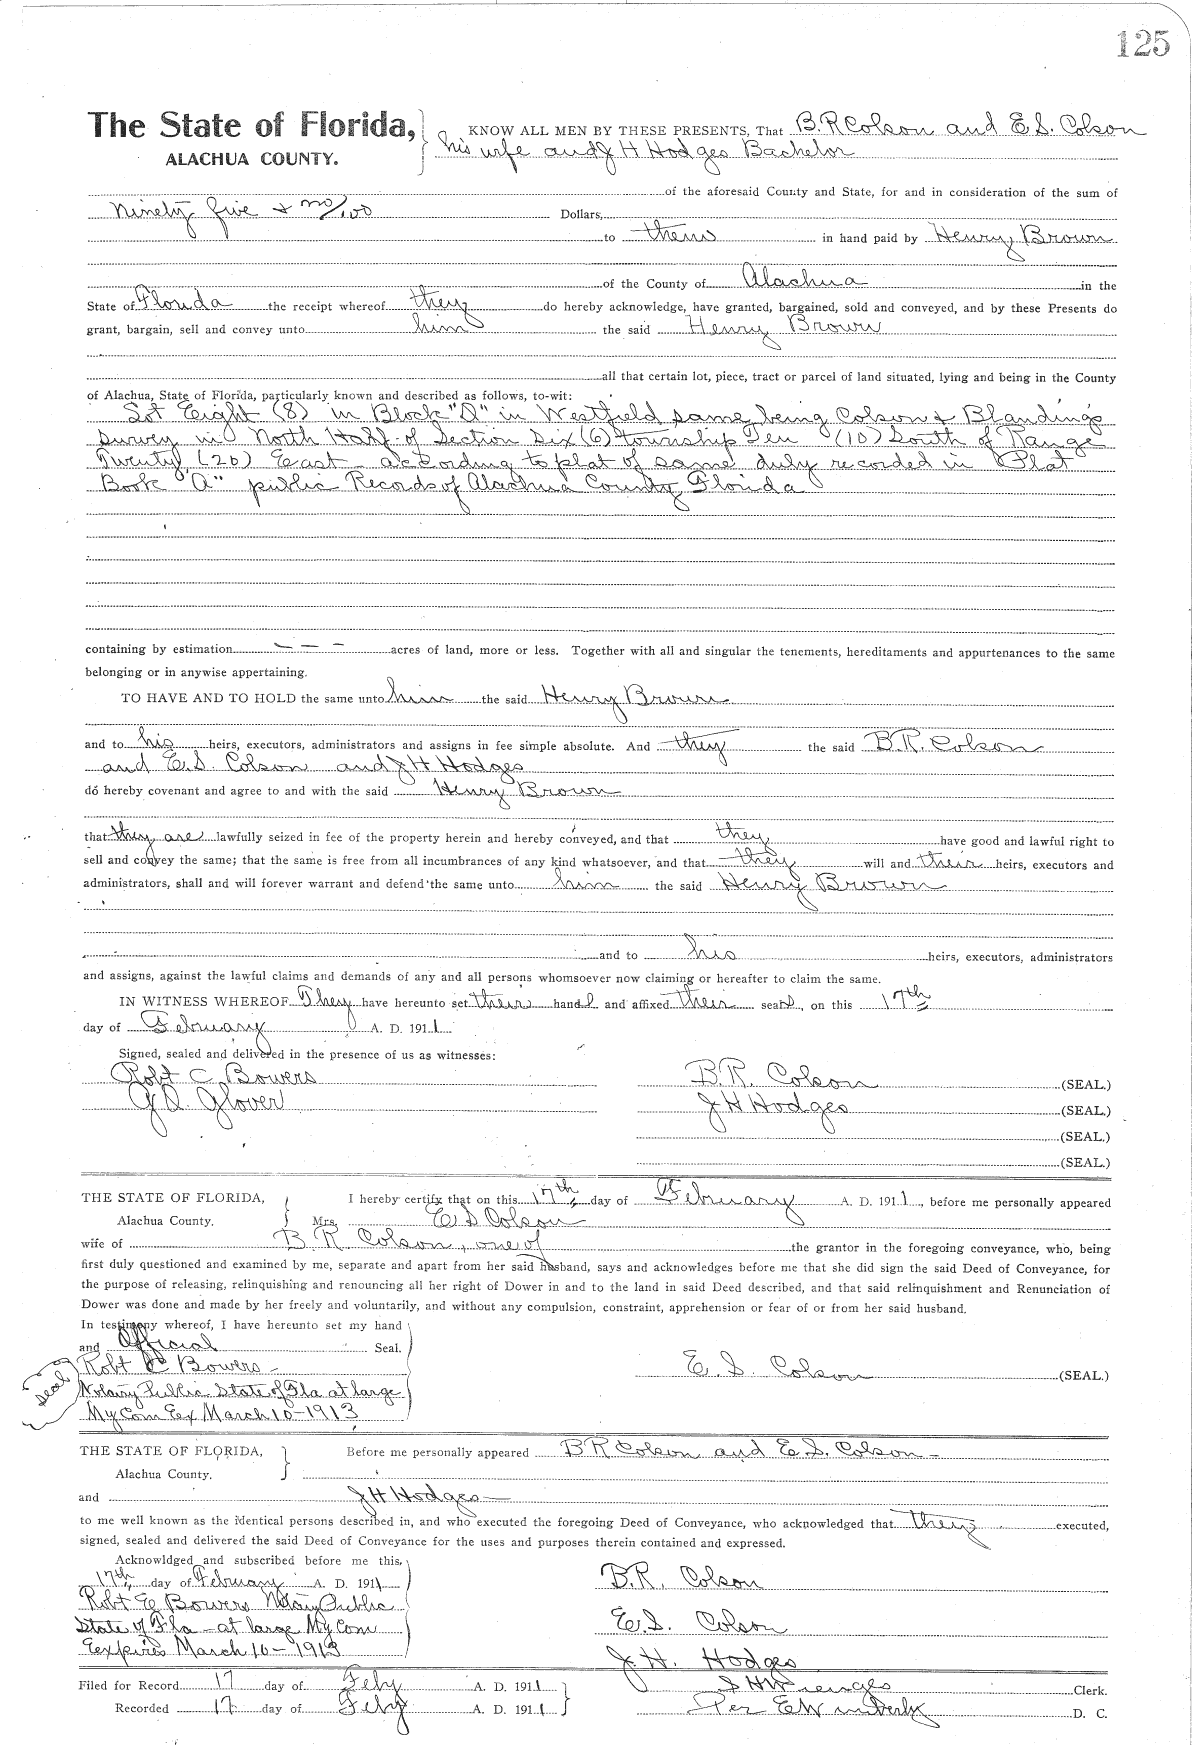 125
The State of Florida, KNOW ALL MEN BY THESE PRESENTS, That B.R Colson and E.S. Colson
ALACHUA COUNTY. his wife and J H Hodges Bachelor
of the aforesaid County and State, for and in consideration of the sum of
Ninety five & no/100 Dollars,
to them in hand paid by Henry Brown
of the County of Alachua in the
State of Florida the receipt whereof they do hereby acknowledge, have granted, bargained, sold and conveyed, and by these Presents do
grant, bargain, sell and convey unto him the said Henry Brown
all that certain lot, piece, tract or parcel of land situated, lying and being in the County
of Alachua, State of Florida, particularly known and described as follows, to-wit:
Lot Eight (8) in Block "D" in Westfield same being Colson & Blandings
survey in North Half of Section Six (6) township Ten (10) South of Range
Twenty (20) East according to plat of same duly recorded in Plat
Book "A" public Records of Alachua County Florida
containing by estimation — — — acres of land, more or less. Together with all and singular the tenements, hereditaments and appurtenances to the same
belonging or in anywise appertaining.
TO HAVE AND TO HOLD the same unto him the said Henry Brown
and to his heirs, executors, administrators and assigns in fee simple absolute. And they the said B.R. Colson
and E.S. Colson and J H Hodges
do hereby covenant and agree to and with the said Henry Brown
that they are lawfully seized in fee of the property herein and hereby conveyed, and that they have good and lawful right to
sell and convey the same; that the same is free from all incumbrances of any kind whatsoever, and that they will and their heirs, executors and
administrators, shall and will forever warrant and defend the same unto him the said Henry Brown
and to his heirs, executors, administrators
and assigns, against the lawful claims and demands of any and all persons whomsoever now claiming or hereafter to claim the same.
IN WITNESS WHEREOF They have hereunto set their hands and affixed their seals, on this 17th
day of February A. D. 1911.
Signed, sealed and delivered in the presence of us as witnesses:
Robt C Bowers B.R. Colson (SEAL.)
Glover J H Hodges (SEAL.)
(SEAL.)
(SEAL.)
THE STATE OF FLORIDA, I hereby certify that on this 17th day of February A. D. 1911, before me personally appeared
Alachua County. Mrs. E S Colson
wife of B R Colson, one of the grantor in the foregoing conveyance, who, being
first duly questioned and examined by me, separate and apart from her said husband, says and acknowledges before me that she did sign the said Deed of Conveyance, for
the purpose of releasing, relinquishing and renouncing all her right of Dower in and to the land in said Deed described, and that said relinquishment and Renunciation of
Dower was done and made by her freely and voluntarily, and without any compulsion, constraint, apprehension or fear of or from her said husband.
In testimony whereof, I have hereunto set my hand
and Official Seal.
Seal Robt C Bowers E. S. Colson (SEAL.)
Notary Public State of Fla at large
My Com Ex March 10-1913
THE STATE OF FLORIDA, Before me personally appeared B R Colson and E.S. Colson
Alachua County.
and J H Hodges
to me well known as the identical persons described in, and who executed the foregoing Deed of Conveyance, who acknowledged that they executed,
signed, sealed and delivered the said Deed of Conveyance for the uses and purposes therein contained and expressed.
Acknowldged and subscribed before me this,
17th day of February A. D. 1911 B.R. Colson
Robt C Bowers Notary Public
State of Fla at large My Com E.S. Colson
Eexpires March 10-1913
J.H. Hodges
Filed for Record 17 day of Feby A. D. 1911 S H Wienges Clerk.
Recorded 17 day of Feby A. D. 1911 Per E Wimberly D. C.